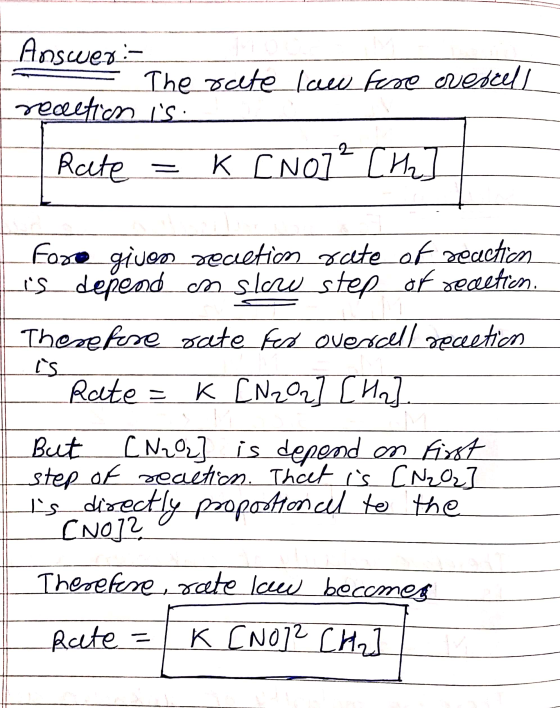 Answer:-
The rate law fore overall
reaction is.
Rate = K [NO]² [H₂]
Fore given reaction rate of reaction
is depend on slow step of reaction.
Therefore rate for overall reaction
is
Rate = K [N₂O₂] [H₂].
But [N₂O₂] is depend on first
step of reaction. That is [N₂O₂]
is directly proportional to the
[NO]².
Therefore, rate law becomes
Rate = K [NO]² [H₂]